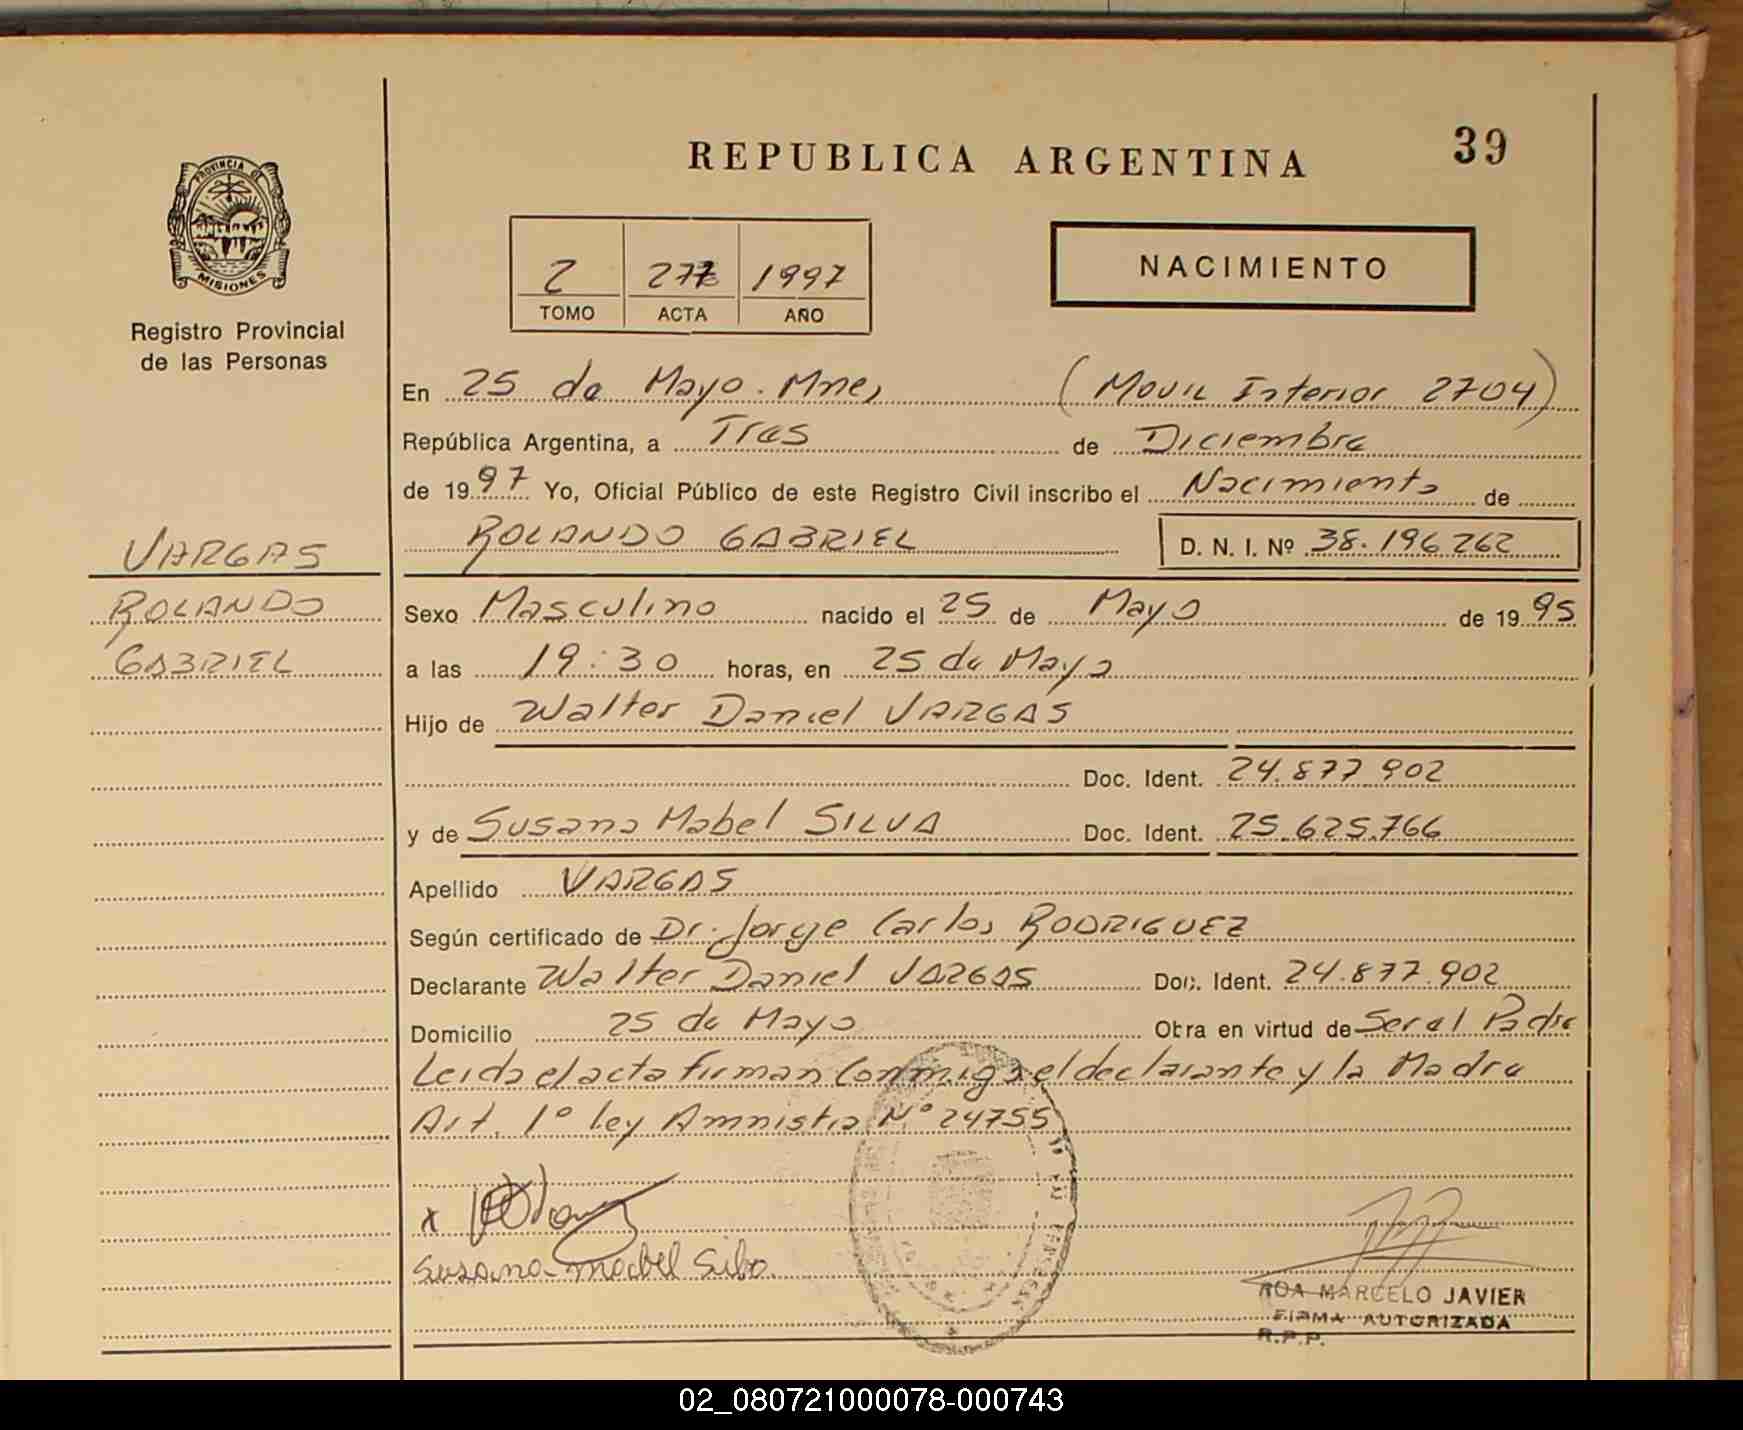 39
REPUBLICA ARGENTINA
PROVINCIA DE
MISIONES
Registro Provincial
de las Personas
2 277 1997
TOMO ACTA AÑO
NACIMIENTO
En 25 de Mayo. Mnes (Movil Interior 2704)
República Argentina, a Tres de Diciembre
de 1997 Yo, Oficial Público de este Registro Civil inscribo el Nacimiento de
ROLANDO GABRIEL D. N. I. Nº 38.196 262
VARGAS
ROLANDO
GABRIEL
Sexo Masculino nacido el 25 de Mayo de 1995
a las 19:30 horas, en 25 de Mayo
Hijo de Walter Daniel VARGAS
Doc. Ident. 24.877 902
y de Susana Mabel SILVA Doc. Ident. 25.625.766
Apellido VARGAS
Según certificado de Dr. Jorge Carlos RODRIGUEZ
Declarante Walter Daniel VARGAS Doc. Ident. 24.877.902
Domicilio 25 de Mayo Obra en virtud de Ser el Padre
Leida el acta firman Conmigo el declarante y la Madre
Art. 1º ley Amnistia Nº 24755
x
Susana mabel Silva.
ROA MARCELO JAVIER
FIRMA AUTORIZADA
R.P.P.
02_080721000078-000743